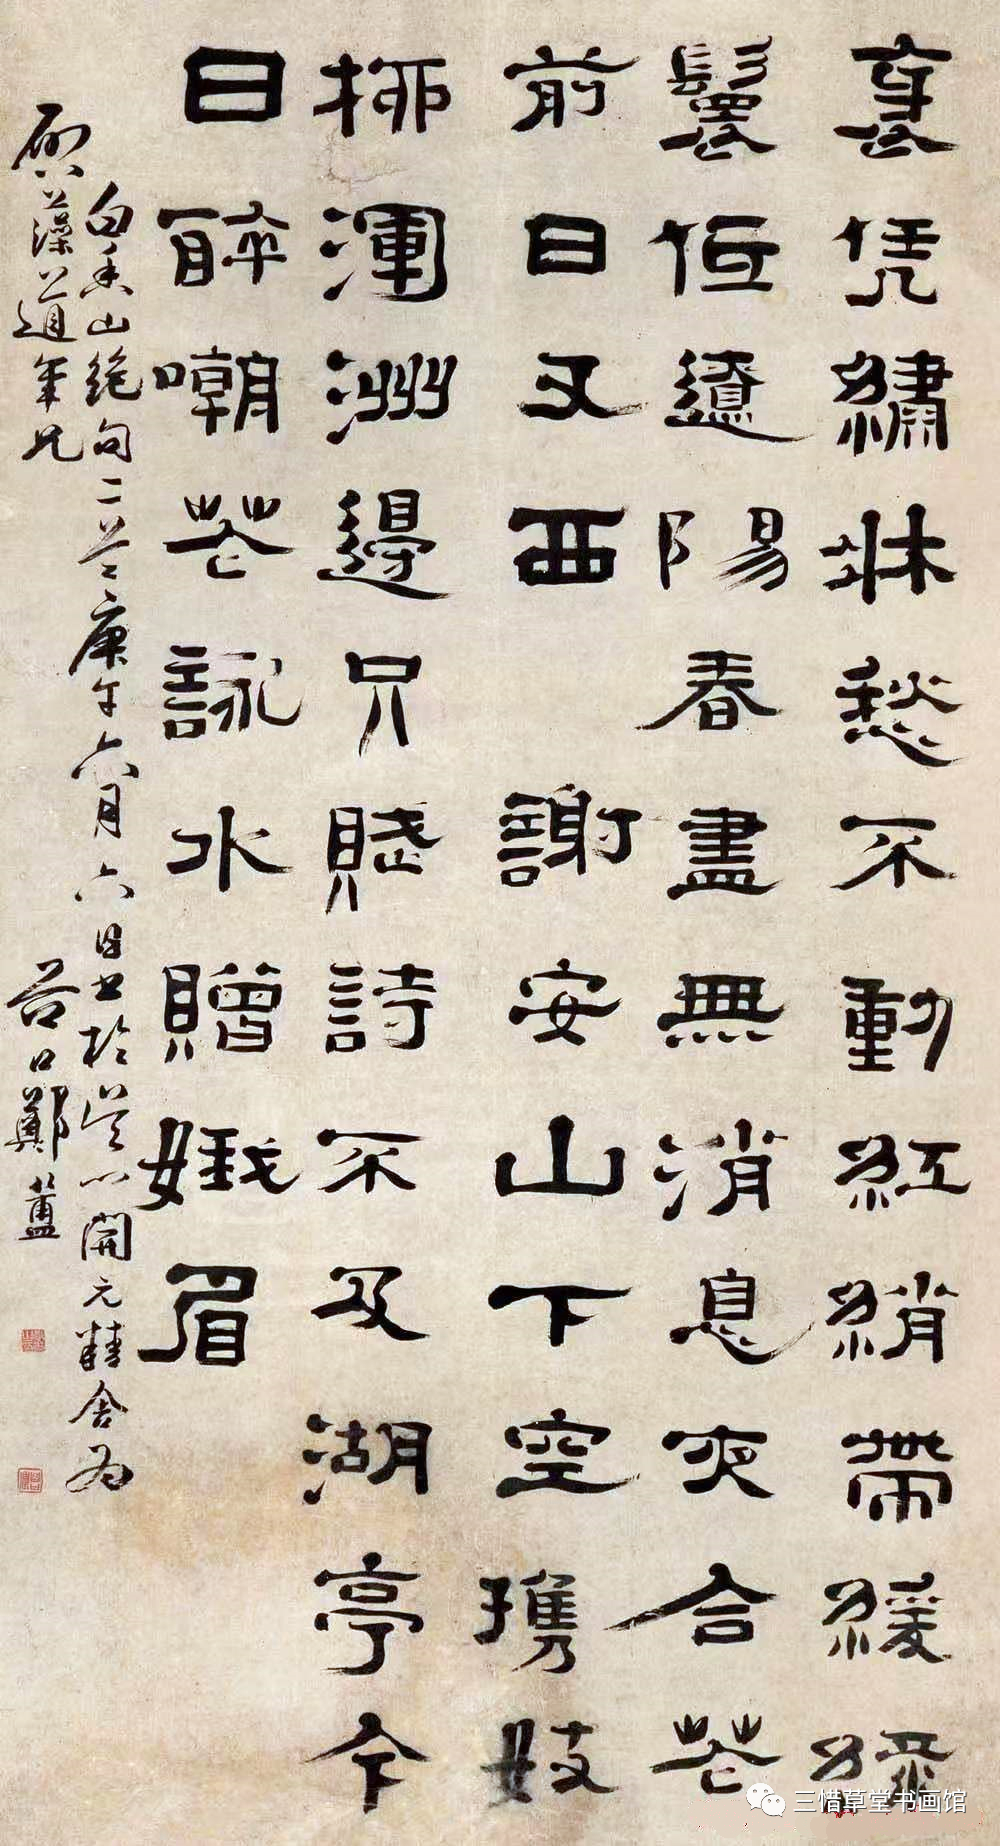 衺凭繡牀愁不動紅綃帶緩綠
鬟低遼陽春盡無消息夜合花
前日又西 謝安山下空攜妓
柳渾洲邊只賦詩不及湖亭今
日醉嘲花詠水贈娥眉
白香山絕句二首庚午六月六日書於吳門開元精舍為
藻道年兄
谷口鄭簠
三惜草堂书画馆